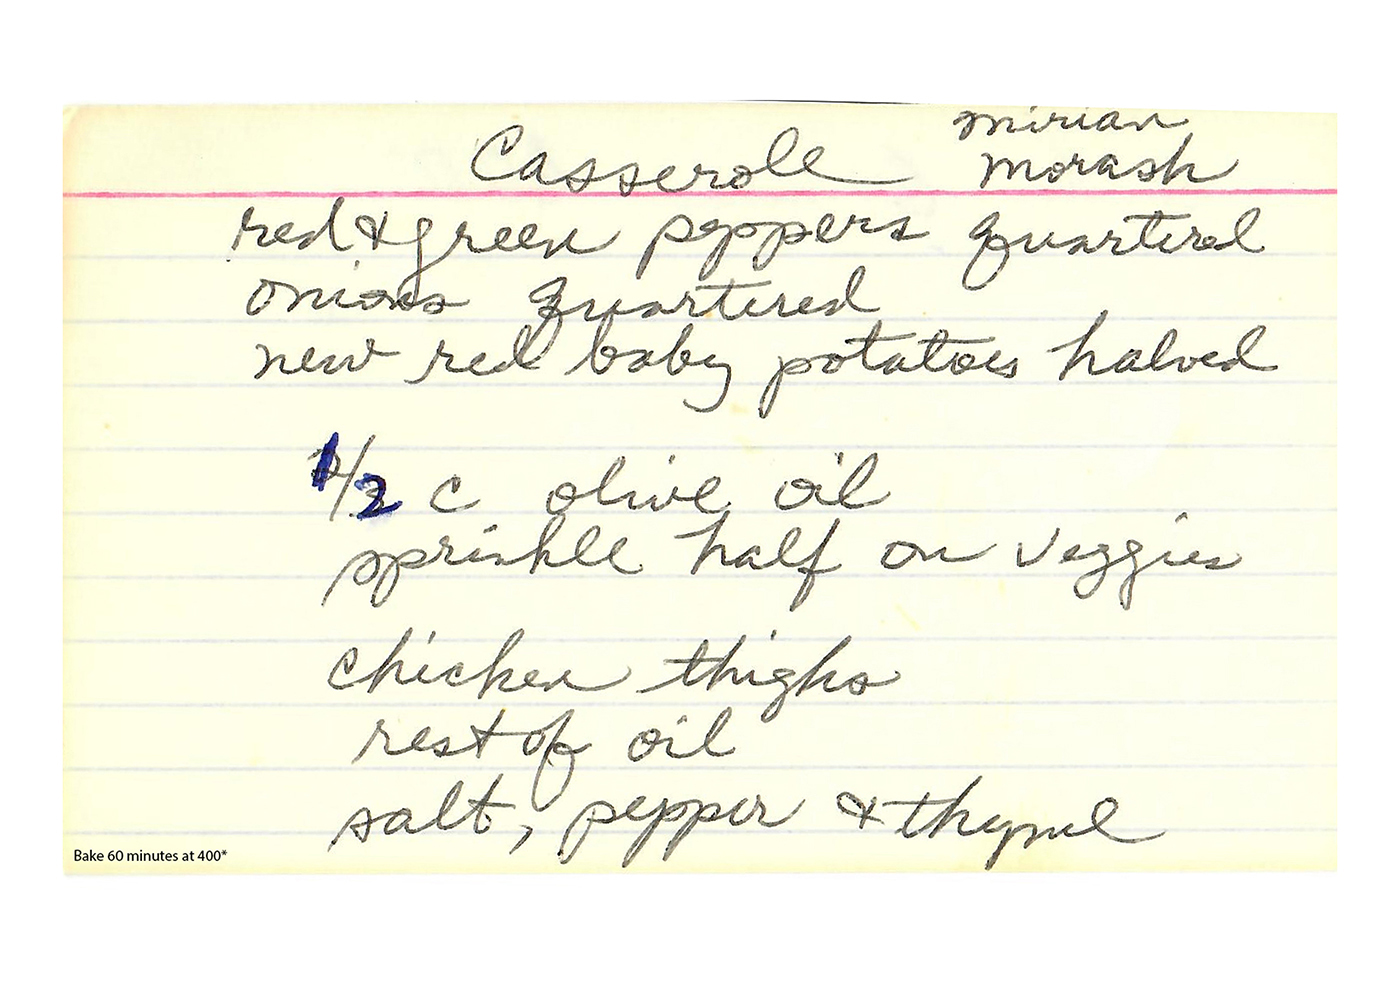 Mirian
Casserole Morash
red & green peppers quartered
onions quartered
new red baby potatoes halved
1/2 c olive oil
sprinkle half on veggies
chicken thighs
rest of oil
salt, pepper & thyme
Bake 60 minutes at 400*